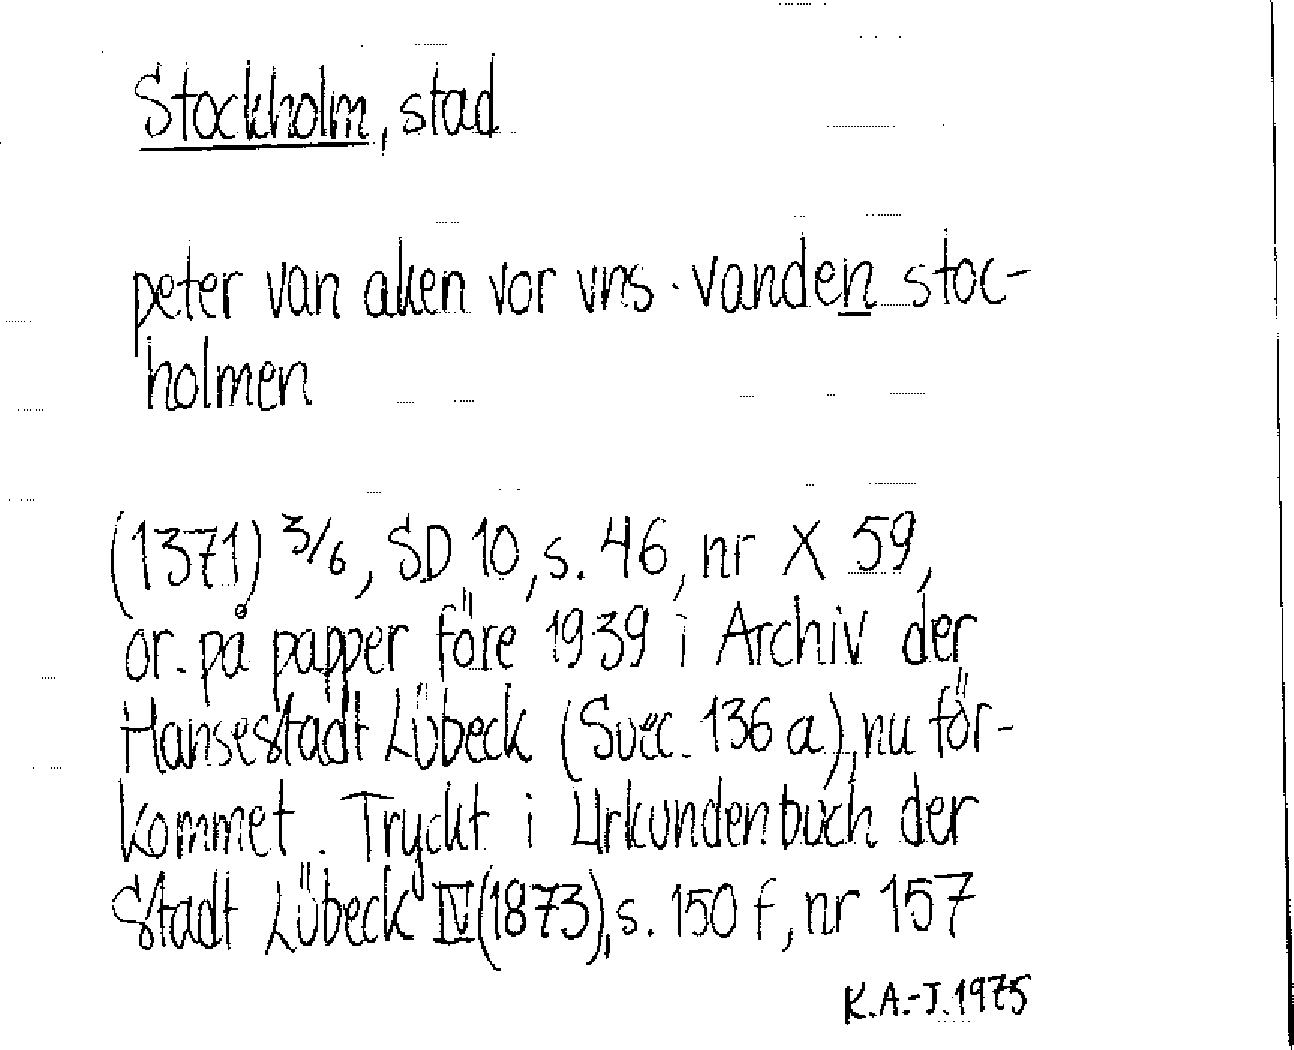 Stockholm, stad
peter van aken vor vns · vanden stoc-
holmen
(1371) 3/6, SD 10, s. 46, nr X 59,
or. på papper före 1939 i Archiv der
Hansestadt Lübeck (Suec. 136 a), nu för-
kommet. Tryckt i Urkundenbuch der
Stadt Lübeck IV (1873), s. 150 f, nr 157
K.A.-J. 1975